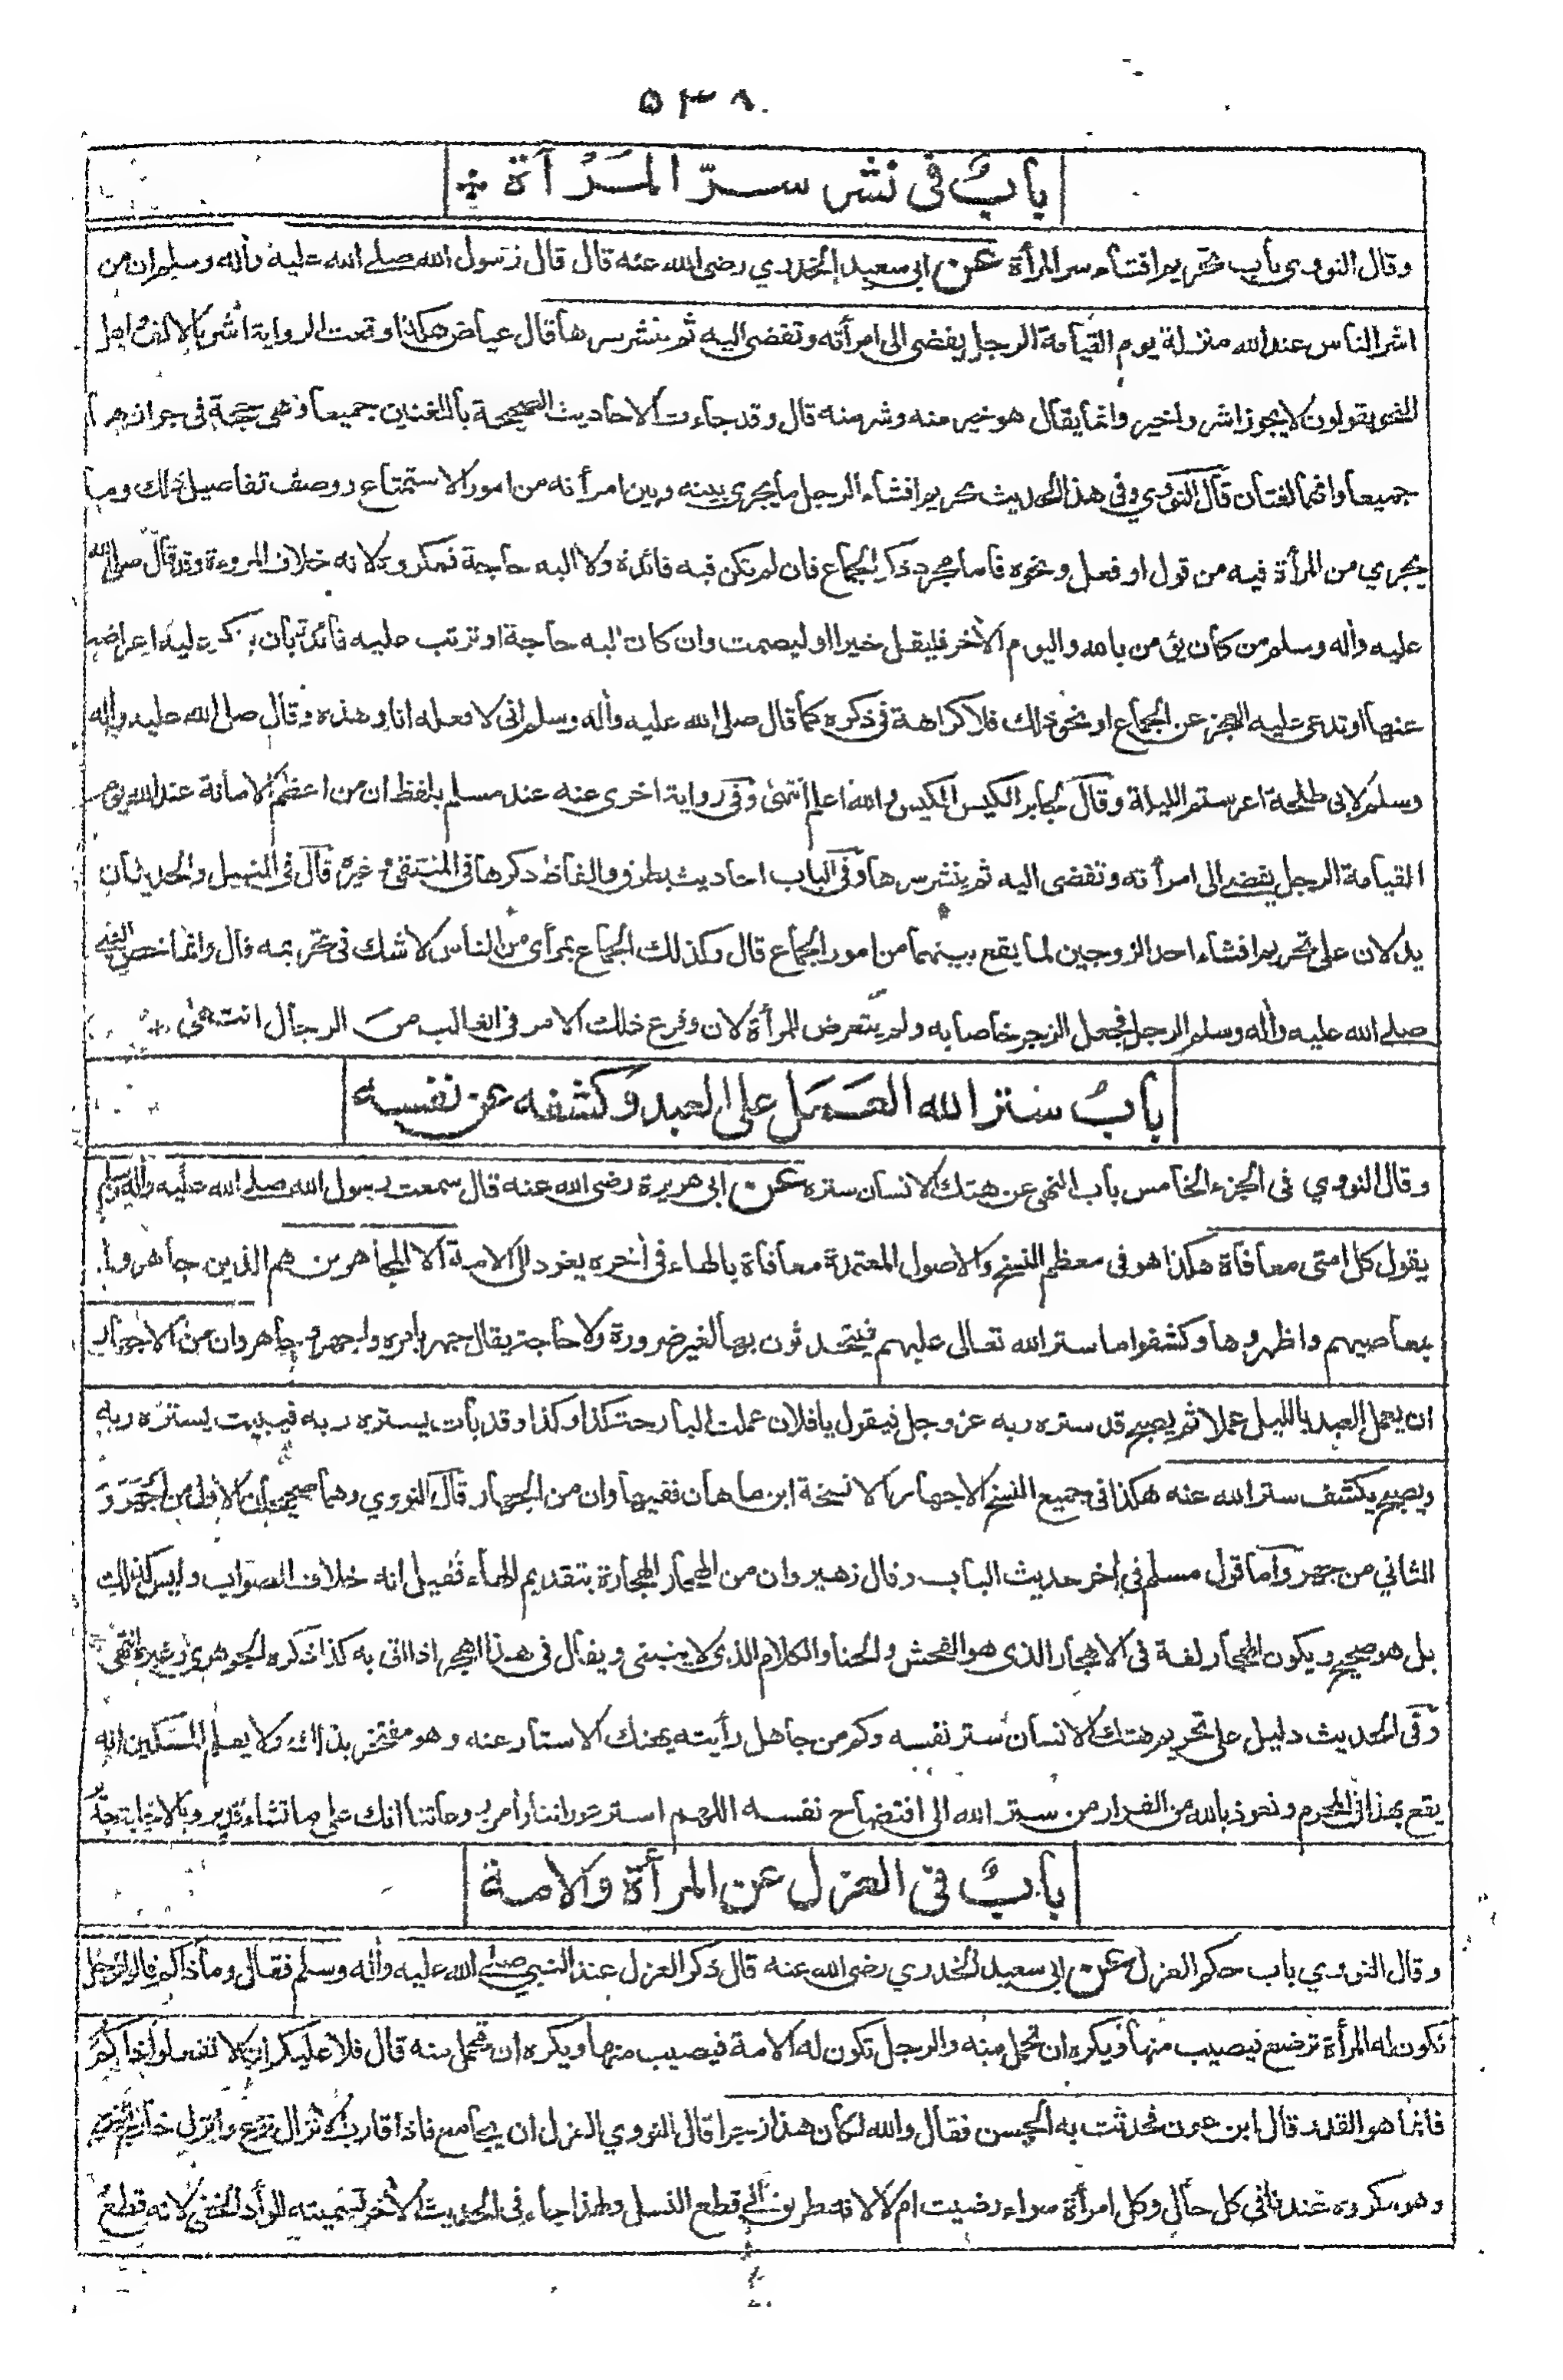 ٥٣٨
باب في نشر سرّ المرأة
وقال النووي باب تحريم افشاء سر المرأة عن ابى سعيد الخدري رضى الله عنه قال قال رسول الله صلى الله عليه وأله وسلم ان من
اشر الناس عند الله منزلة يوم القيامة الرجل يفضى الى امرأته وتفضى اليه ثم ينشر سرها قال عياض هكذا وقعت الرواية اشر بالالف واهل
النحو يقولون لا يجوز اشر واخير وانما يقال هو خير منه وشر منه قال وقد جاءت الاحاديث الصحيحة باللغتين جميعا وهى حجة في جوازهما
جميعا وانهما لغتان قال النووي وفي هذا الحديث تحريم افشاء الرجل ما يجرى بينه وبين امرأته من امور الاستمتاع ووصف تفاصيل ذلك وما
يجري من المرأة فيه من قول او فعل ونحوه فاما مجرد ذكر الجماع فان لم تكن فيه فائدة ولا اليه حاجة فمكروه لانه خلاف المروءة وقد قال صلى الله
عليه وأله وسلم من كان يؤمن بالله واليوم الأخر فليقل خيرا او ليصمت وان كان اليه حاجة او ترتب عليه فائدة بان ينكر عليه اعراضه
عنها او تدعى عليه العجز عن الجماع او نحو ذلك فلا كراهة في ذكره كما قال صلى الله عليه وأله وسلم انى لافعله انا وهذه وقال صلى الله عليه وأله
وسلم لابى طلحة اعرستم الليلة وقال لجابر الكيس الكيس والله اعلم انتهى وفي رواية اخرى عنه عند مسلم بلفظ ان من اعظم الامانة عند الله يوم
القيامة الرجل يفضى الى امرأته وتفضى اليه ثم ينشر سرها وفي الباب احاديث بطرق والفاظ ذكرها في المنتقى وغيره قال في النيل والحديثان
يدلان على تحريم افشاء احد الزوجين لما يقع بينهما من امور الجماع قال وكذلك الجماع بمرأى من الناس لا شك في تحريمه قال وانما خص النبي
صلى الله عليه وأله وسلم الرجل فجعل الزجر خاصا به ولم يتعرض للمرأة لان وقوع ذلك الامر في الغالب من الرجال انتهى
باب ستر الله العمل على العبد وكشفه عن نفسه
وقال النووي في الجزء الخامس باب النهى عن هتك الانسان ستره عن ابى هريرة رضى الله عنه قال سمعت رسول الله صلى الله عليه وأله وسلم
يقول كل امتى معافاة هكذا هو في معظم النسخ والاصول المعتمدة معافاة بالهاء في أخره يعود الى الامة الا المجاهرين هم الذين جاهروا
بمعاصيهم واظهروها وكشفوا ما ستر الله تعالى عليهم فيتحدثون بها لغير ضرورة ولا حاجة يقال جهر بامره واجهر وجاهر وان من الاجهار
ان يعمل العبد بالليل عملا ثم يصبح قد ستره ربه عز وجل فيقول يا فلان عملت البارحة كذا وكذا وقد بات يستره ربه فيبيت يستره ربه
ويصبح يكشف ستر الله عنه هكذا في جميع النسخ الاجهار الا نسخة ابن ماهان ففيها وان من الجهار قال النووي وهما صحيحان الاول من اجهر و
الثاني من جهر واما قول مسلم في أخر حديث الباب وقال زهير وان من الهجار الهجارة بتقديم الهاء فقيل انه خلاف الصواب وليس كذلك
بل هو صحيح ويكون الهجار لغة في الاهجار الذى هو الفحش والخنا والكلام الذى لا ينبغى ويقال في هذا اهجر اذا اتى به كذا ذكره الجوهرى وغيره انتهى
وفي الحديث دليل على تحريم هتك الانسان ستر نفسه وكم من جاهل رأيته يهتك الاستار عنه وهو مفتخر بذلك ولا يعلم المسكين انه
يقع بهذا في المحرم ونعوذ بالله من الفرار من ستر الله الى افتضاح نفسه اللهم استر عوراتنا وأمن روعاتنا انك على ما تشاء قدير وبالاجابة جدير
باب في العزل عن المرأة والامة
وقال النووي باب حكم العزل عن ابى سعيد الخدري رضى الله عنه قال ذكر العزل عند النبي صلى الله عليه وأله وسلم فقال وما ذاكم قالوا الرجل
تكون له المرأة ترضع فيصيب منها ويكره ان تحمل منه والرجل تكون له الامة فيصيب منها ويكره ان تحمل منه قال فلا عليكم ان لا تفعلوا ذاكم
فانما هو القدر قال ابن عون فحدثت به الحسن فقال والله لكان هذا زجرا قال النووي العزل ان يجامع فاذا قارب الانزال نزع وانزل خارج الفرج
وهو مكروه عندنا في كل حال وكل امرأة سواء رضيت ام لا لانه طريق الى قطع النسل ولهذا جاء في الحديث الأخر تسميته الوأد الخفى لانه قطع